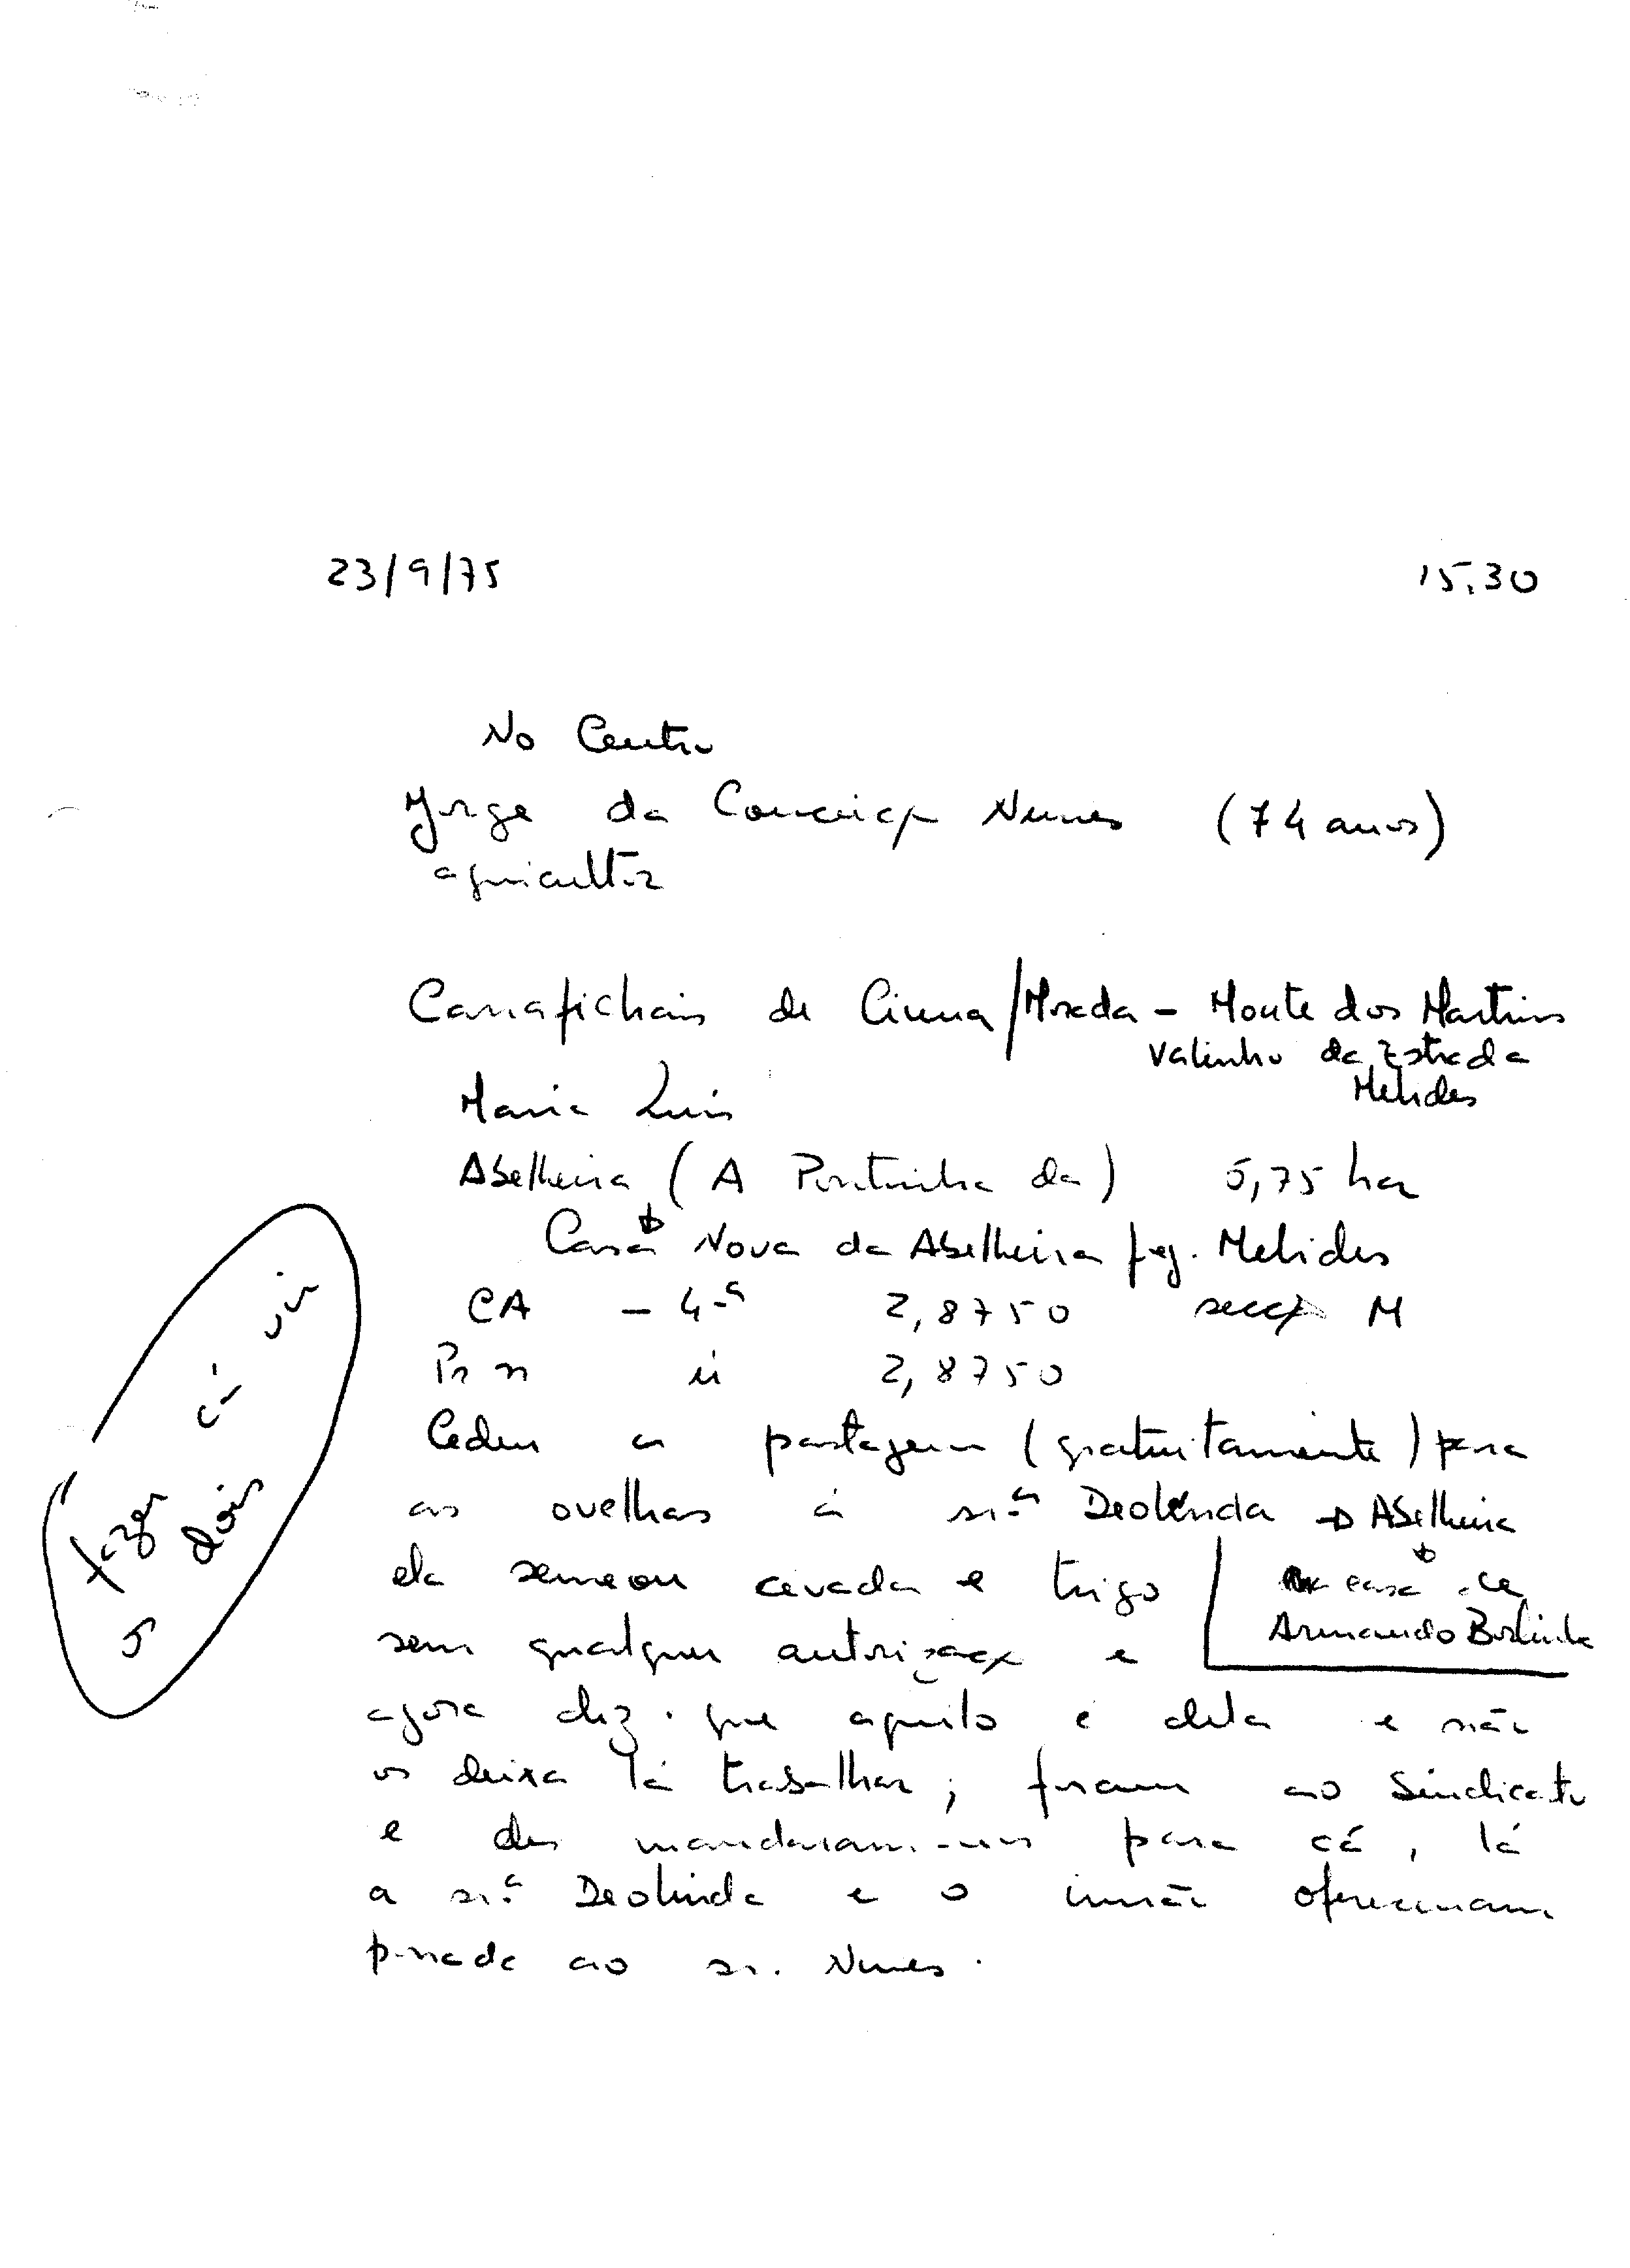 23/9/75 15.30
No Centro
Jorge da Conceição Nunes (74 anos)
agricultor
Canafichais de Cima / Morada - Monte dos Martins
Valinho da Estrada
Melides
Maria Luis
Abelheira (A Portinha da) 5,75 ha
Casa Nova da Abelheira freg. Melides
CA - 4.ª 2,8750 secção M
2,8750
Cedeu a pastagem (gratuitamente) para
as ovelhas à sr.ª Deolinda → Abelheira
ela semeou cevada e trigo
casa de
Armando
sem qualquer autorização e
agora diz que aquilo é dela e não
os deixa lá trabalhar; foram ao Sindicato
e eles mandaram-nos para cá, lá
a sr.ª Deolinda e o irmão ofereceram
porrada ao sr. Nunes.
fazer cá vir
os dois